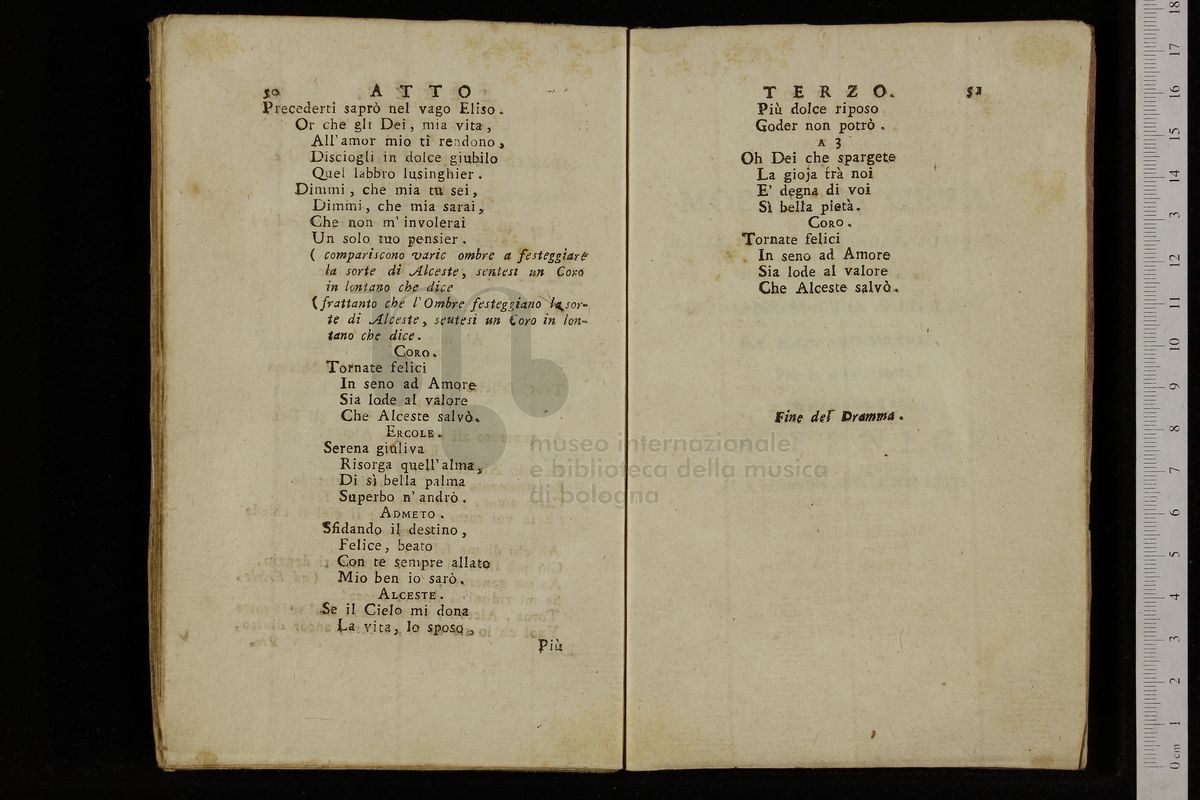 50 ATTO
Precederti saprò nel vago Eliso.
Or che gli Dei, mia vita,
All'amor mio ti rendono,
Disciogli in dolce giubilo
Quel labbro lusinghier.
Dimmi, che mia tu sei,
Dimmi, che mia sarai,
Che non m'involerai
Un solo tuo pensier.
( compariscono varie ombre a festeggiare
la sorte di Alceste, sentesi un Coro
in lontano che dice
(frattanto che l'Ombre festeggiano la sor-
te di Alceste, sentesi un Coro in lon-
tano che dice.
CORO.
Tornate felici
In seno ad Amore
Sia lode al valore
Che Alceste salvò.
ERCOLE.
Serena giuliva
Risorga quell'alma,
Di sì bella palma
Superbo n'andrò.
ADMETO.
Sfidando il destino,
Felice, beato
Con te sempre allato
Mio ben io sarò.
ALCESTE.
Se il Cielo mi dona
La vita, lo sposo,
Più
TERZO. 51
Più dolce riposo
Goder non potrò.
A 3
Oh Dei che spargete
La gioja trà noi
E' degna di voi
Sì bella pietà.
CORO.
Tornate felici
In seno ad Amore
Sia lode al valore
Che Alceste salvò.
Fine del Dramma.
museo internazionale
e biblioteca della musica
di bologna
0 cm 1 2 3 4 5 6 7 8 9 10 11 12 13 14 15 16 17 18